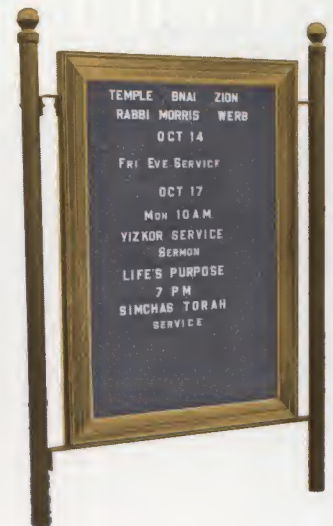 TEMPLE BNAI ZION
RABBI MORRIS WERB
OCT 14
FRI EVE SERVICE
OCT 17
MON 10 A M
YIZKOR SERVICE
SERMON
LIFE'S PURPOSE
7 PM
SIMCHAS TORAH
SERVICE